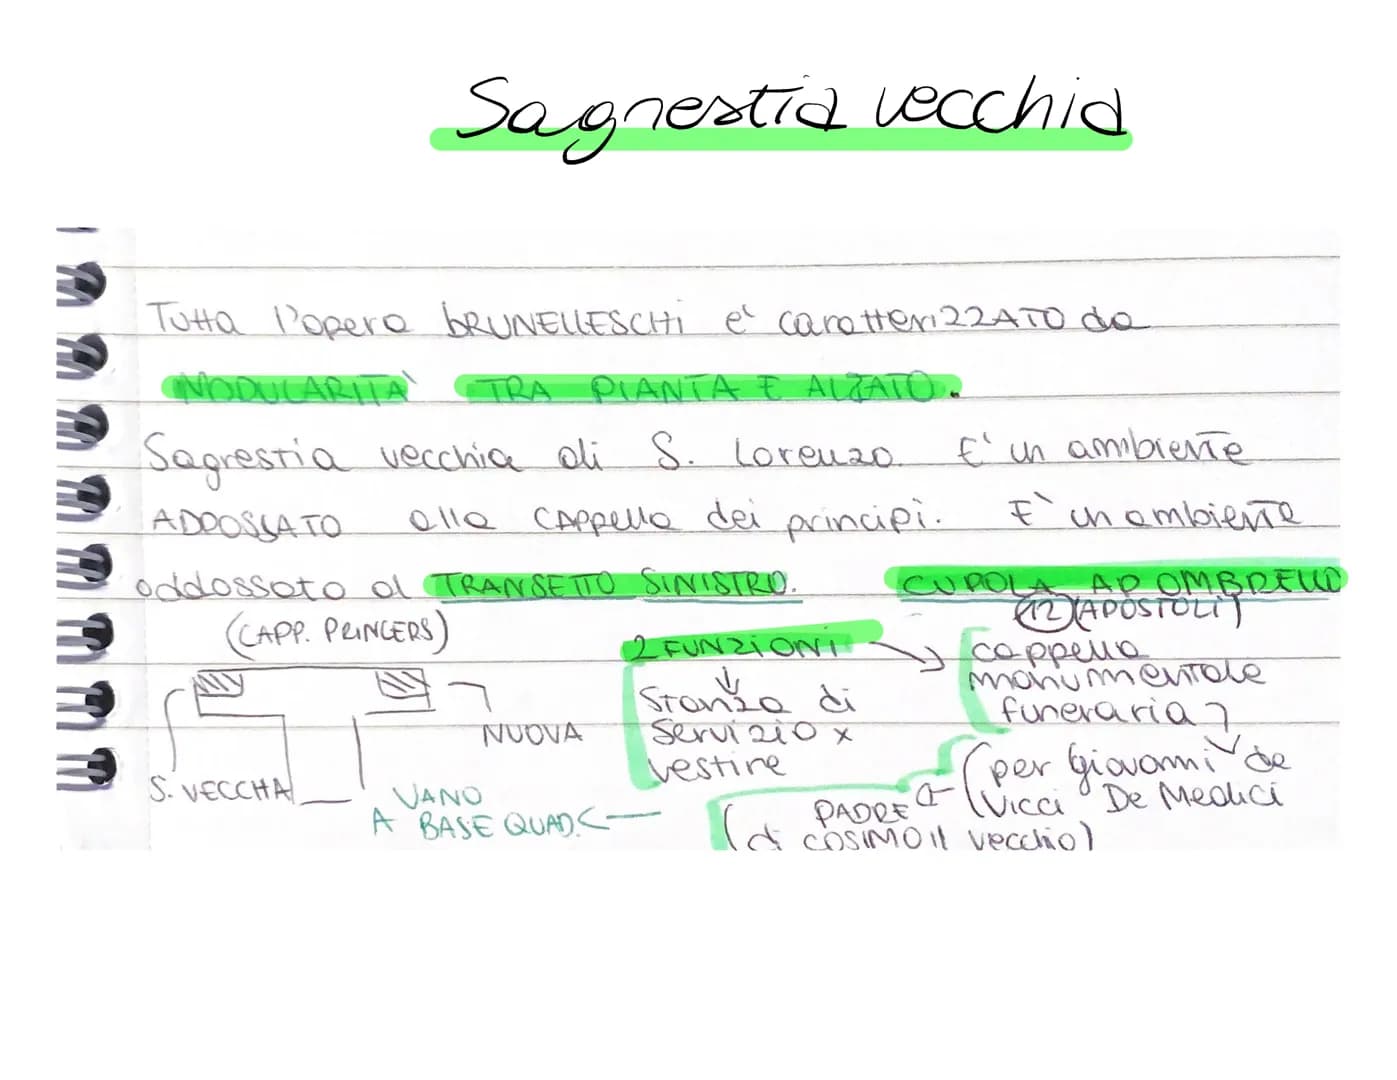 Sagrestia vecchia
Tutta l'opera BRUNELLESCHI e' caratteriZZATO da
MODULARITÀ TRA PIANTA E ALZATO.
Sagrestia vecchia di S. Lorenzo. E' un ambiente
ADDOSSATO alla CAppella dei principi. E` un ambiente
addossato al TRANSETTO SINISTRO. CUPOLA AD OMBRELLO
(12) (APOSTOLI)
(CAPP. PRINCERS)
2 FUNZIONI
cappella
monumentale
funeraria
Stanza di
Servizio x
vestire
NUOVA
S. VECCHA
VANO
A BASE QUAD.
(per Giovanni de
Vicci De Medici
PADRE
(di COSIMO il vecchio)